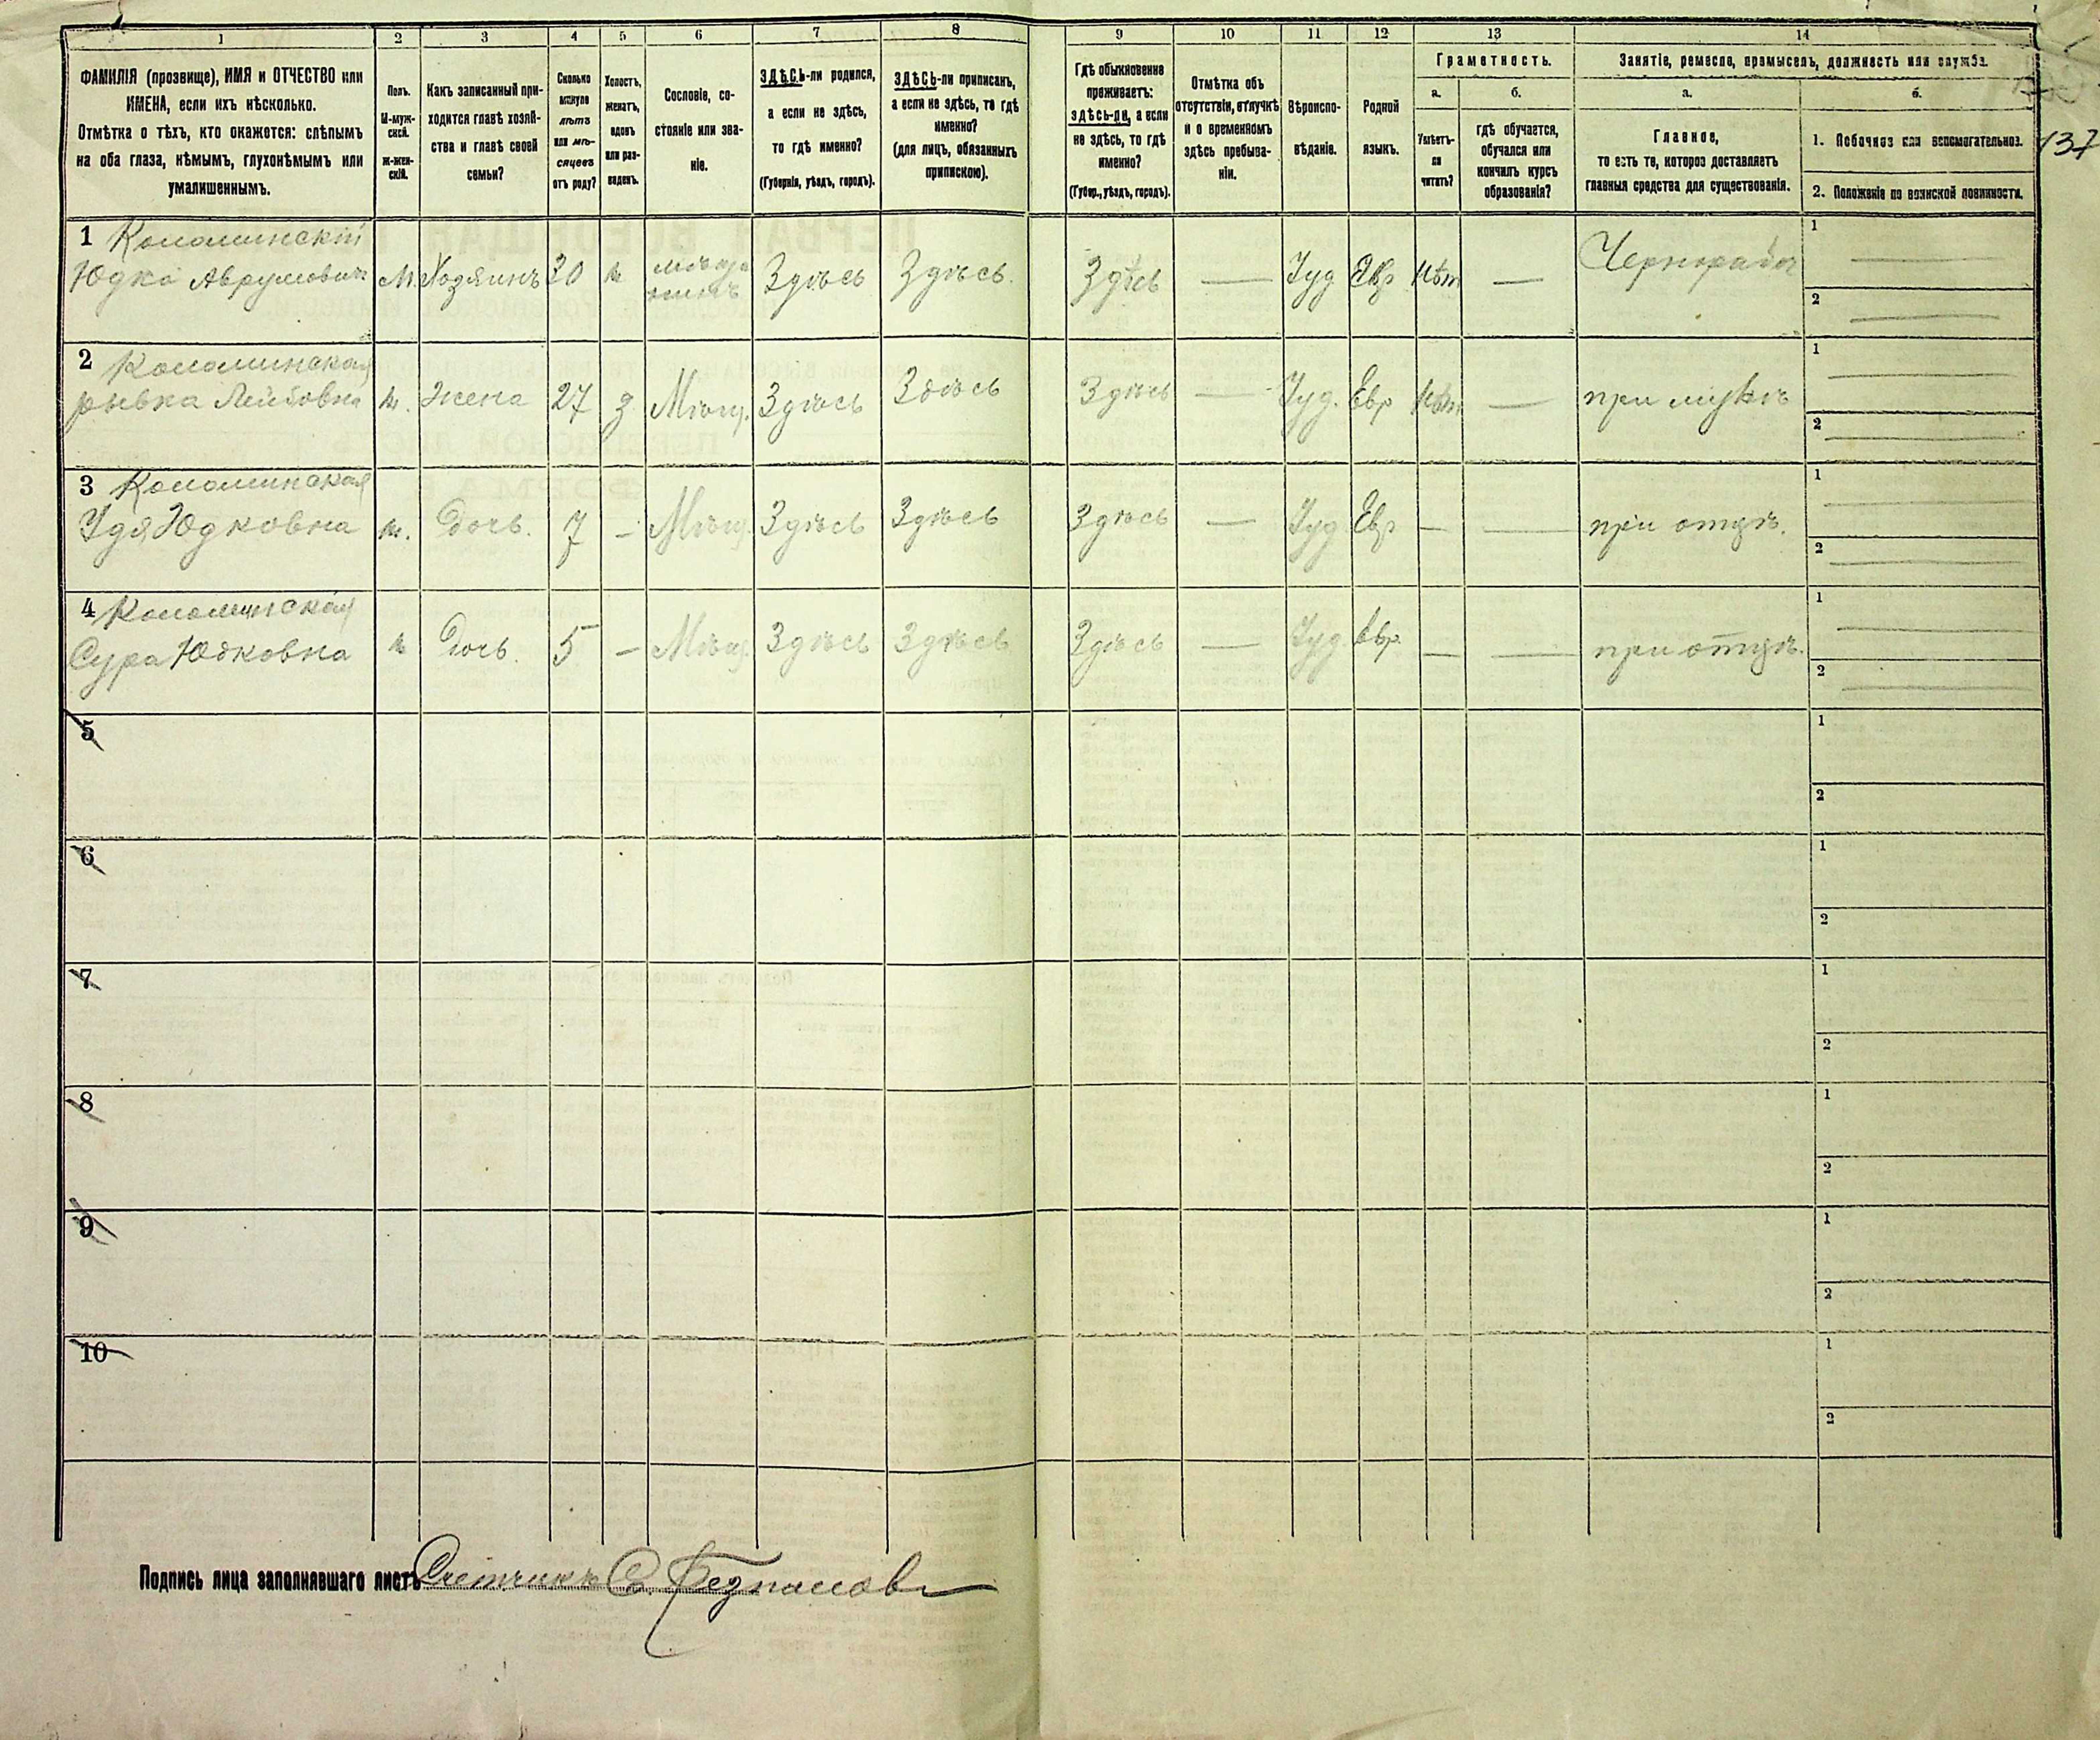 1 2 3 4 5 6 7 8 9 10 11 12 13 14
ФАМИЛІЯ (прозвище), ИМЯ и ОТЧЕСТВО или
ИМЕНА, если ихъ нѣсколько.
Отмѣтка о тѣхъ, кто окажется: слѣпымъ
на оба глаза, нѣмымъ, глухонѣмымъ или
умалишеннымъ.
Полъ.
М-муж-
ской.
Ж-жен-
скій.
Какъ записанный при-
ходится главѣ хозяй-
ства и главѣ своей
семьи?
Сколько
минуло
лѣтъ
или мѣ-
сяцевъ
отъ роду?
Холостъ,
женатъ,
вдовъ
или раз-
веденъ.
Сословіе, со-
стояніе или зва-
ніе.
ЗДѢСЬ-ли родился,
а если не здѣсь,
то гдѣ именно?
(Губернія, уѣздъ, городъ).
ЗДѢСЬ-ли приписанъ,
а если не здѣсь, то гдѣ
именно?
(для лицъ, обязанныхъ
припискою).
Гдѣ обыкновенно
проживаетъ:
здѣсь-ли, а если
не здѣсь, то гдѣ
именно?
(Губер., уѣздъ, городъ).
Отмѣтка объ
отсутствіи, отлучкѣ
и о временномъ
здѣсь пребыва-
ніи.
Вѣроиспо-
вѣданіе.
Родной
языкъ.
Грамотность.
а.
Умѣетъ-
ли
читать?
б.
гдѣ обучается,
обучался или
кончилъ курсъ
образованія?
Занятіе, ремесло, промыселъ, должность или служба.
а.
Главное,
то есть то, которое доставляетъ
главныя средства для существованія.
б.
1. Побочное или вспомогательное.
2. Положеніе по воинской повинности.
137
1 Коломинскій
Юдко Аврумовичъ М. Хозяинъ 30 ж Здѣсь Здѣсь. Здѣсь — Іуд Евр нѣт — Чернорабоч
1 —
2 —
2 Коломинская
рывка Лейбовна ж. Жена 27 з Мѣщ. Здѣсь Здѣсь Здѣсь — Іуд. Евр нѣт — при мужѣ
1 —
2 —
3 Коломинская
Удя Юдковна ж. Дочь. 7 - Мѣщ. Здѣсь Здѣсь Здѣсь — Іуд Евр — — при отцѣ.
1 —
2 —
4 Коломинская
Сура Юдковна ж Дочь. 5 — Мѣщ. Здѣсь Здѣсь Здѣсь — Іуд. Евр. — — при отцѣ.
1 —
2 —
5 1
2
6 1
2
7 1
2
8 1
2
9 1
2
10 1
2
Подпись лица заполнявшаго листъ Счетчикъ С.